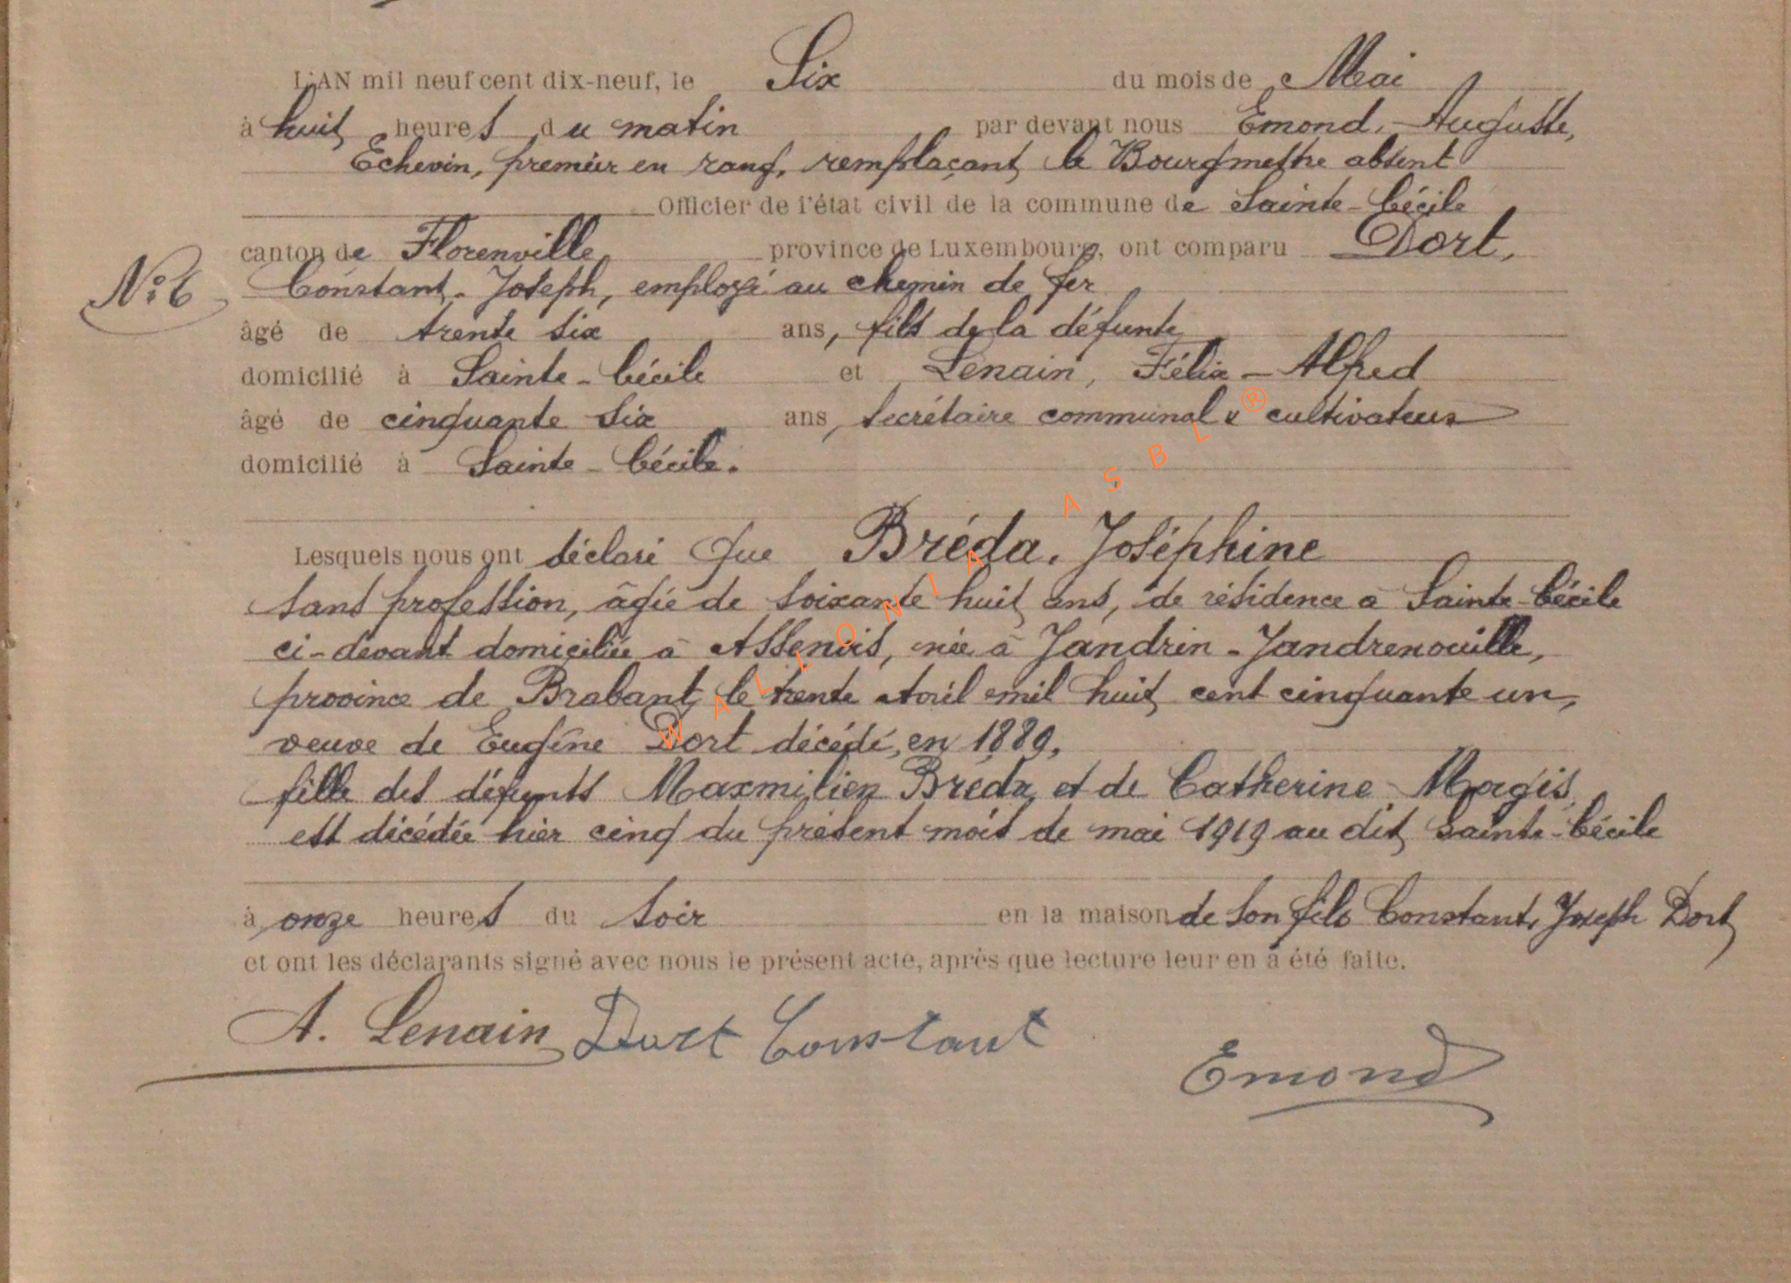 L'AN mil neuf cent dix-neuf, le Six du mois de Mai
à huit heures du matin par devant nous Emond, Auguste,
Echevin, premier en rang, remplaçant le Bourgmestre absent
Officier de l'état civil de la commune de Sainte-Cécile
canton de Florenville province de Luxembourg, ont comparu Dort,
N° 6 Constant-Joseph, employé au chemin de fer
âgé de trente six ans, fils de la défunte
domicilié à Sainte-Cécile et Lenain, Félix-Alfred
âgé de cinquante six ans, secrétaire communal & cultivateur
domicilié à Sainte-Cécile.
Lesquels nous ont déclaré que Bréda, Joséphine
sans profession, âgée de soixante huit ans, de résidence à Sainte-Cécile
ci-devant domiciliée à Assenois, née à Jandrin-Jandrenouille,
province de Brabant, le trente Avril mil huit cent cinquante un,
veuve de Eugène Dort décédé, en 1889,
fille des défunts Maxmilien Bréda et de Catherine Magis
est décédée hier cinq du présent mois de mai 1919 au dit Sainte-Cécile
à onze heures du soir en la maison de son fils Constant, Joseph Dort
et ont les déclarants signé avec nous le présent acte, après que lecture leur en a été faite.
A. Lenain Dort Constant
Emond
WALLONIA ASBL ®